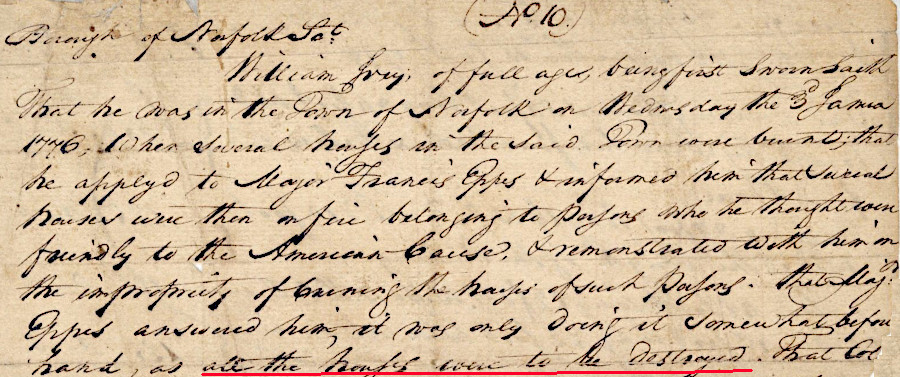 (No 10.)
Borough of Norfolk Sct.
William Ivey, of full age, being first Sworn Saith
That he was in the Town of Norfolk on Wednesday the 3d Janua
1776, When several houses in the said Town were burnt; that
he applyd to Major Francis Eppes & informed him that several
houses were then on fire belonging to persons who he thought were
friendly to the American Cause, & remonstrated with him on
the impropriety of burning the houses of such Persons. that Majr.
Eppes answered him, it was only doing it somewhat before
hand, as all the houses were to be destroyed. That Col